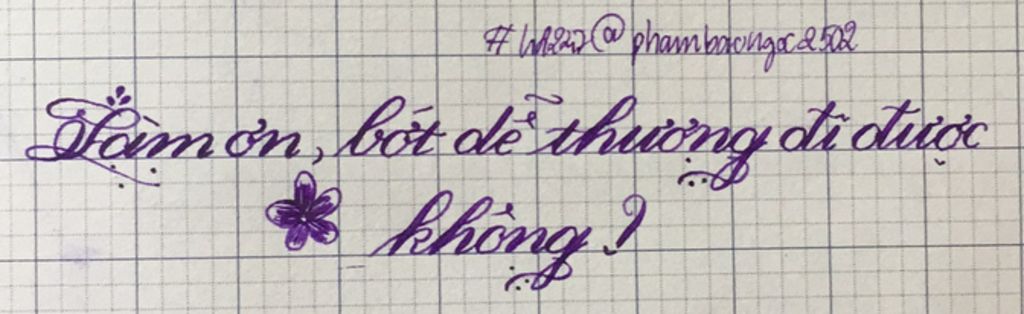 @phambaongoc2502
Làm ơn, bớt dễ thương đi được
không?